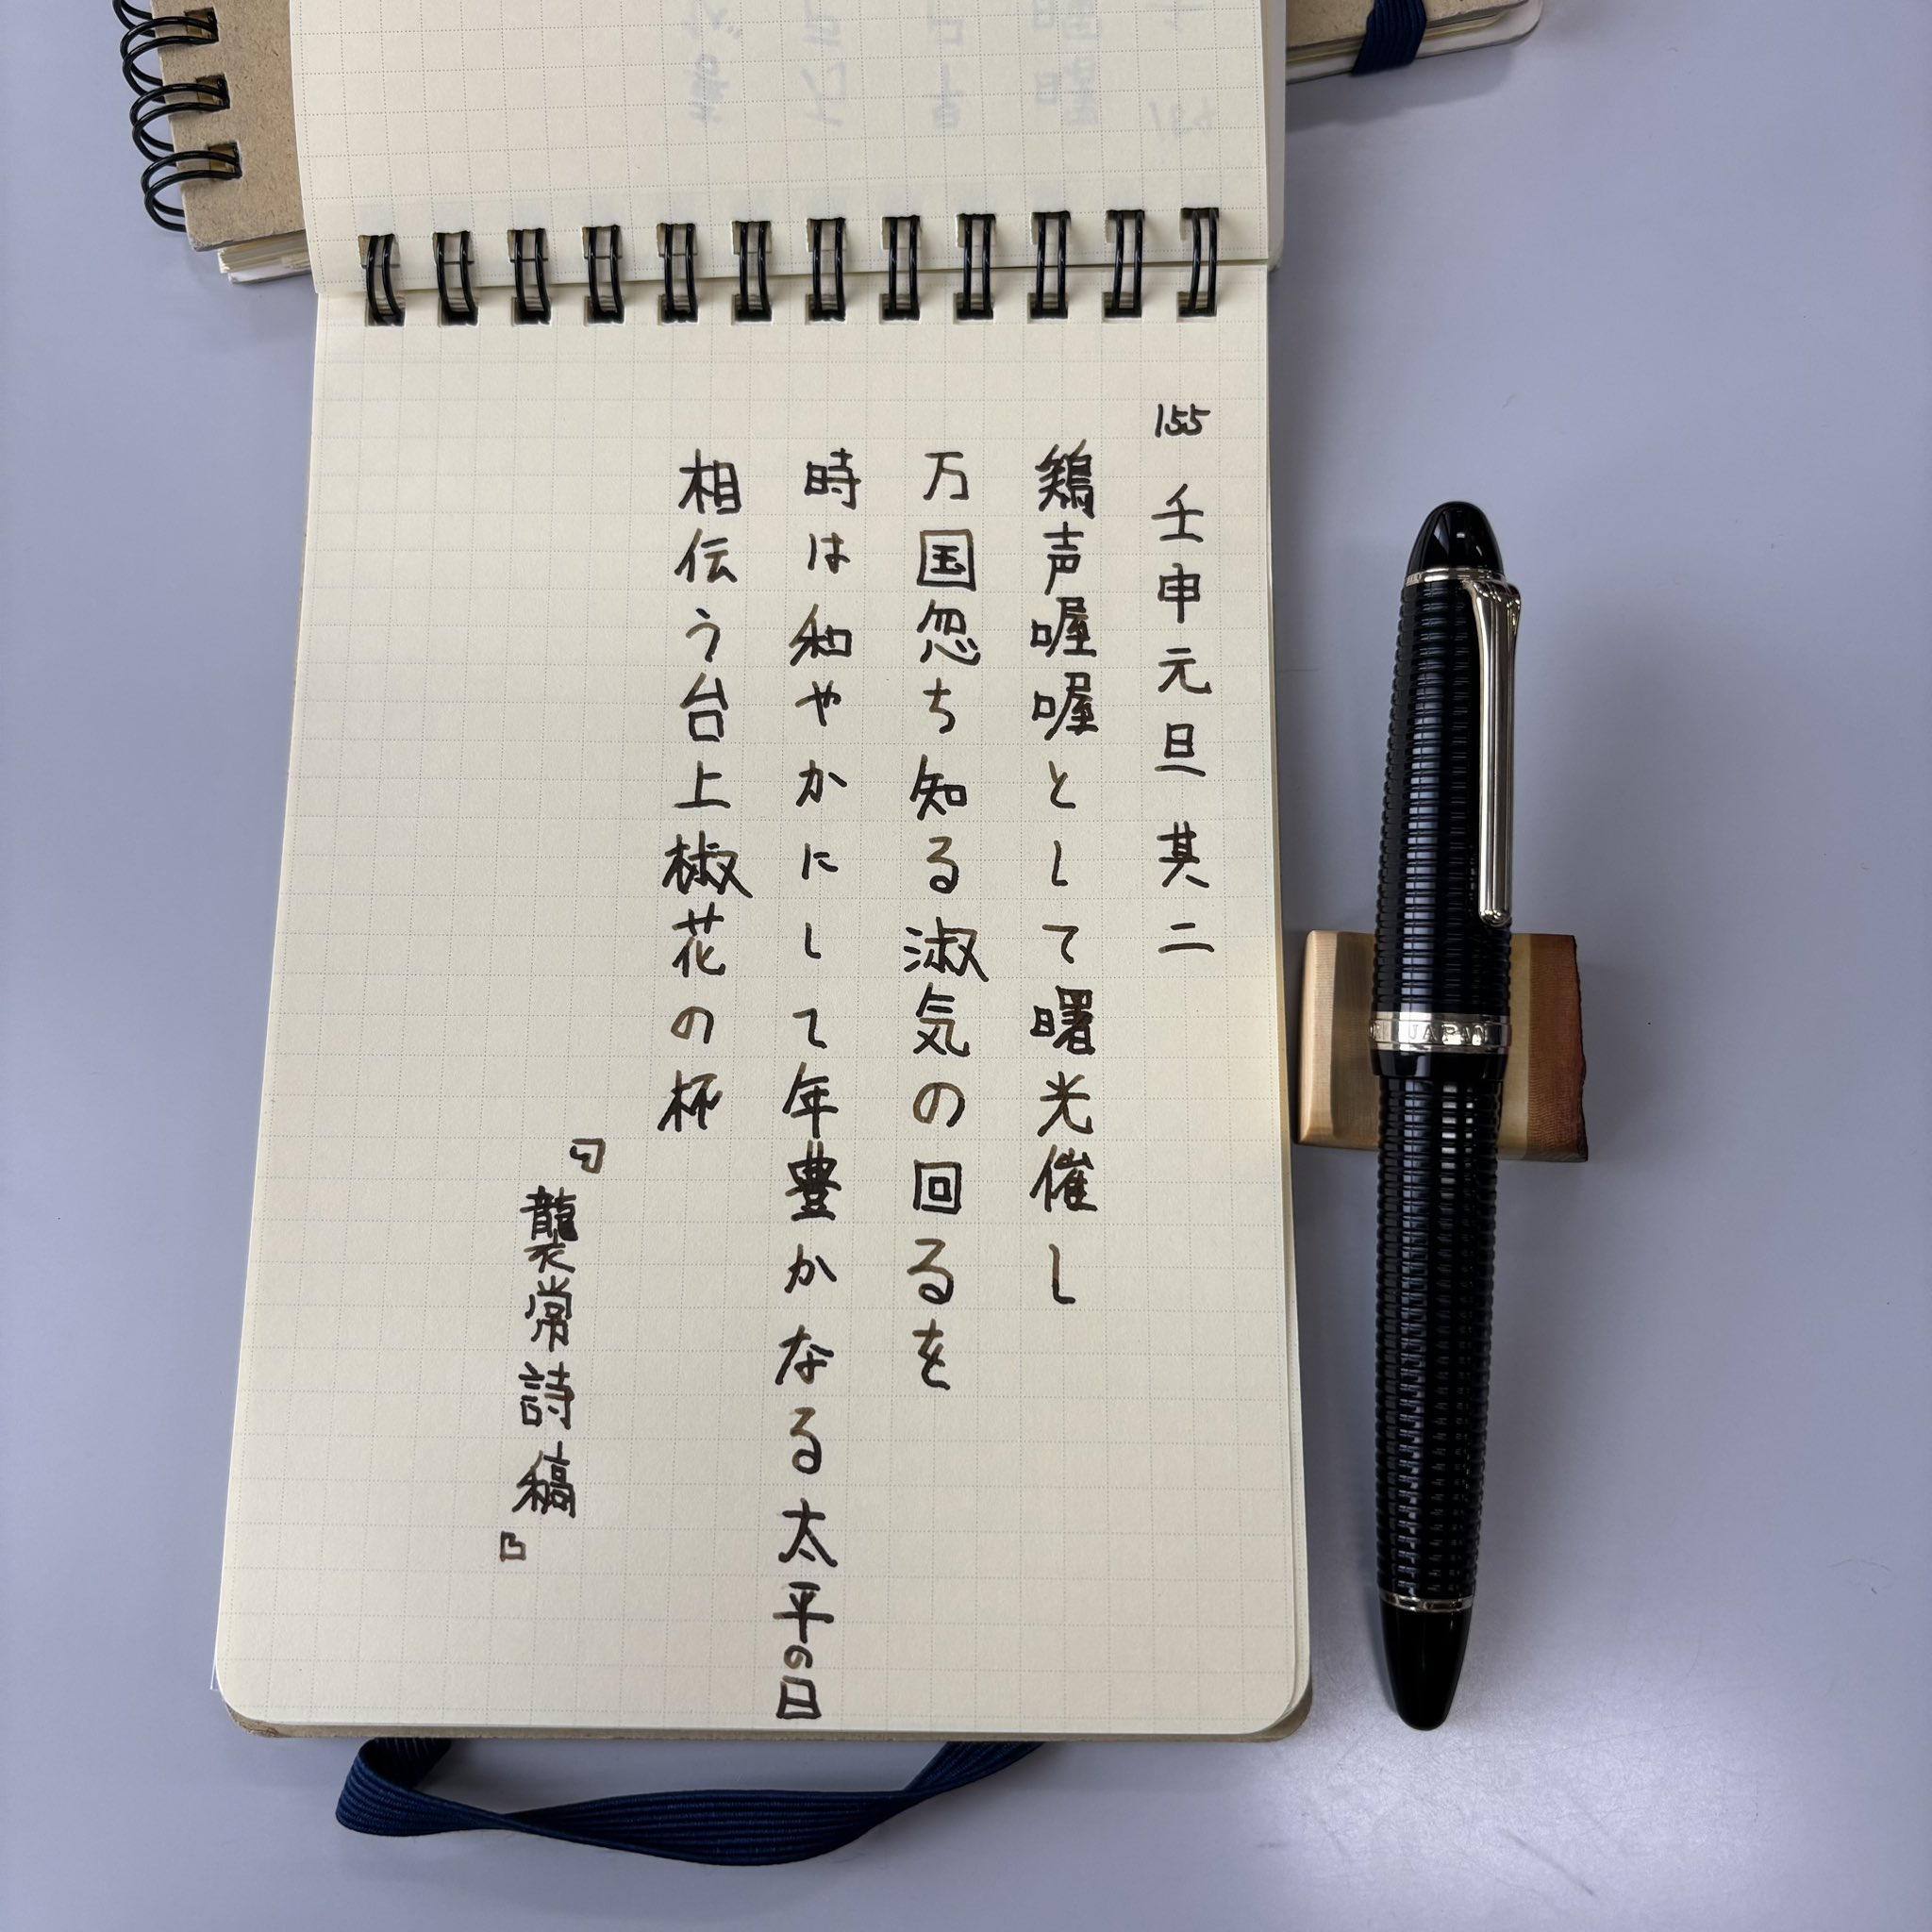 155 壬申元旦 其二
鶏声喔喔として曙光催し
万国忽ち知る淑気の回るを
時は和やかにして年豊かなる太平の日
相伝う台上椒花の杯
『襲常詩稿』
JAPAN